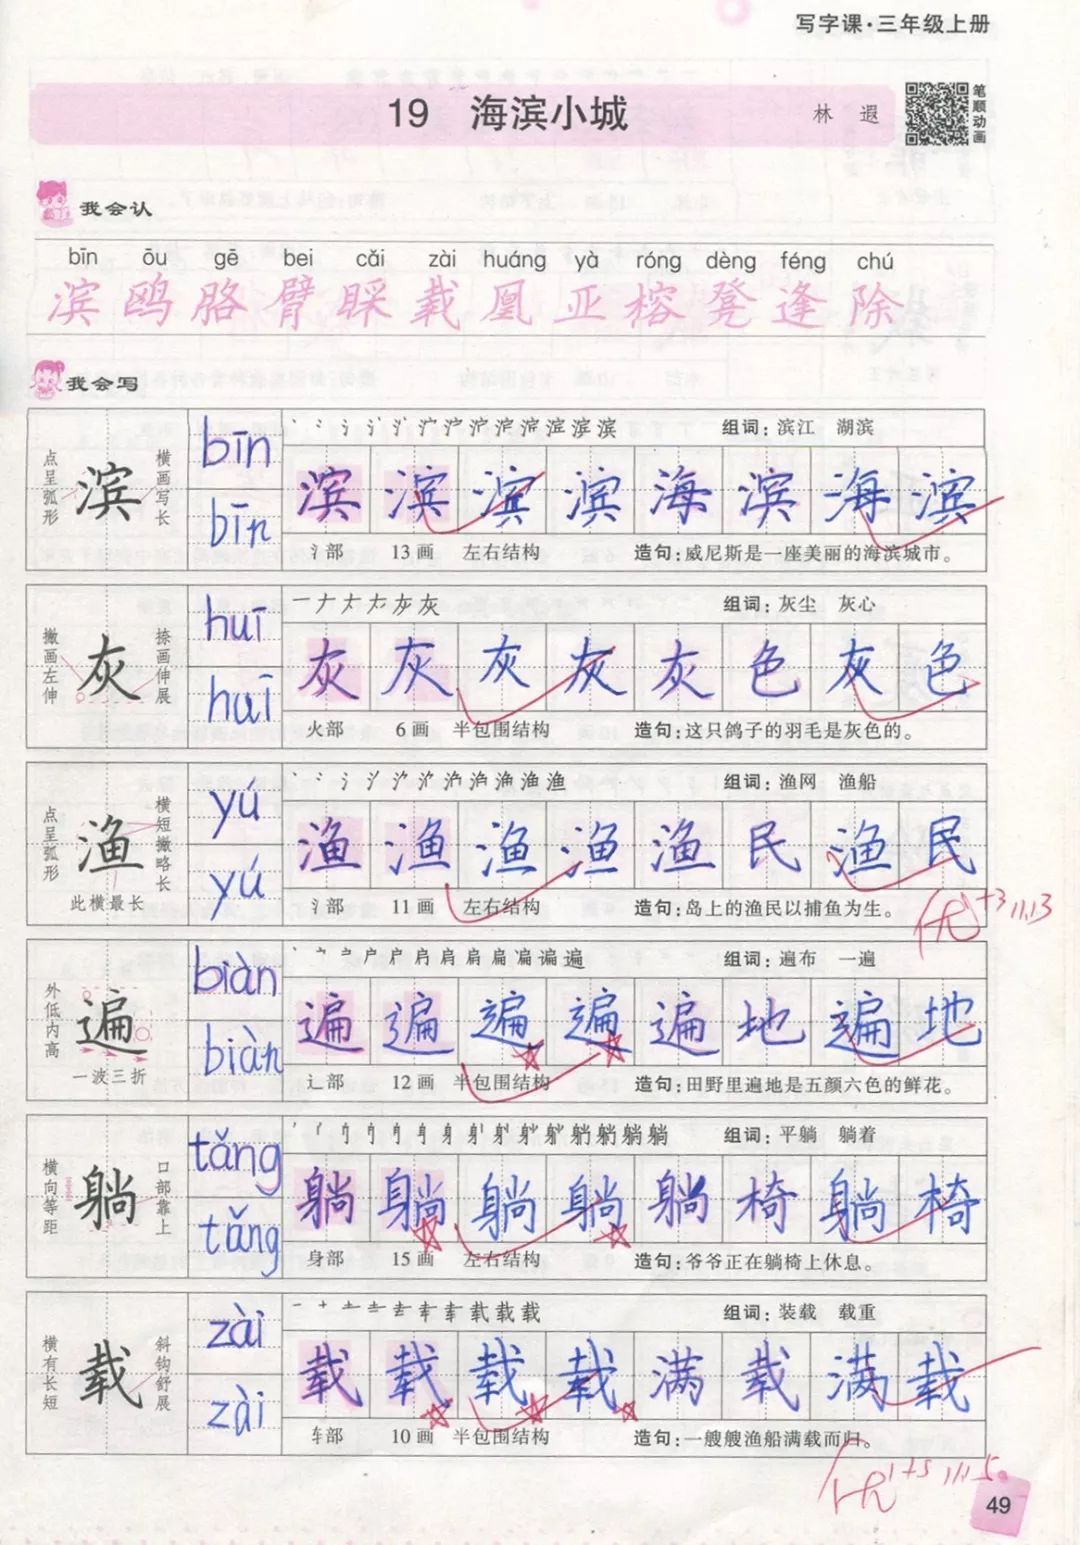 写字课·三年级上册
19 海滨小城
林 遐
笔顺动画
我会认
bīn ōu gē bei cǎi zài huáng yà róng dèng féng chú
滨 鸥 胳 臂 睬 载 凰 亚 榕 凳 逢 除
我会写
点呈弧形
滨
横画写长
bīn
bīn
组词：滨江 湖滨
滨 滨 滨 滨 海 滨 海 滨
氵部 13画 左右结构 造句：威尼斯是一座美丽的海滨城市。
撇画左伸
灰
捺画伸展
huī
huī
组词：灰尘 灰心
灰 灰 灰 灰 灰 色 灰 色
火部 6画 半包围结构 造句：这只鸽子的羽毛是灰色的。
点呈弧形
渔
横短撇略长
此横最长
yú
yú
组词：渔网 渔船
渔 渔 渔 渔 渔 民 渔 民
氵部 11画 左右结构 造句：岛上的渔民以捕鱼为生。
优+3 11.13
外低内高
遍
一波三折
biàn
biàn
组词：遍布 一遍
遍 遍 遍 遍 遍 地 遍 地
辶部 12画 半包围结构 造句：田野里遍地是五颜六色的鲜花。
横向等距
躺
口部靠上
tǎng
tǎng
组词：平躺 躺着
躺 躺 躺 躺 躺 椅 躺 椅
身部 15画 左右结构 造句：爷爷正在躺椅上休息。
横有长短
载
斜钩舒展
zài
zài
组词：装载 载重
载 载 载 载 满 载 满 载
车部 10画 半包围结构 造句：一艘艘渔船满载而归。
优+5 11.15
49